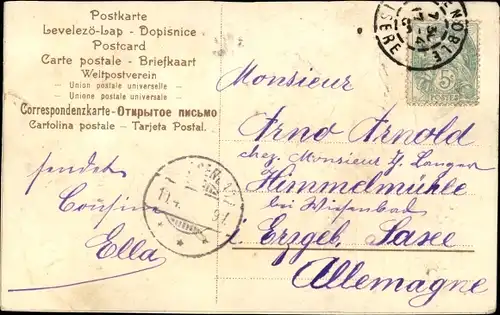 Postkarte
Levelezö-Lap - Dopisnice
Postcard
Carte postale - Briefkaart
Weltpostverein
- Union postale universelle -
- Unione postale universale -
Correspondenzkarte-Открытое письмо
Cartolina postale - Tarjeta Postal.
ISÈRE
5
Monsieur
Arno Arnold
chez Monsieur H. Langer
Himmelmühle
bei Wiesenbad
i. Erzgeb. Saxe
Allemagne
sendet
Cousine
Ella